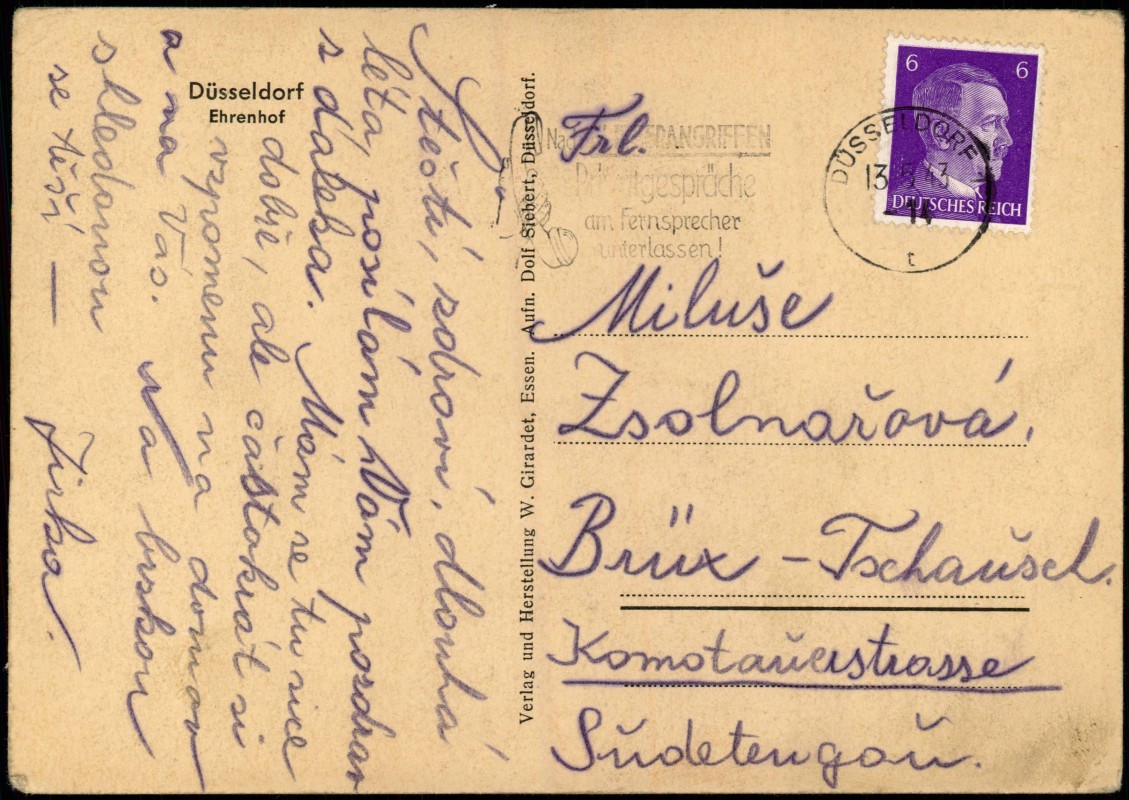 Düsseldorf
Ehrenhof
Štěstí, zdroví, dlouhá
léta, posílám Vám pozdrav
s daleka. Mám se tu sice
dobře, ale častokrát si
vzpomenu na domov
a na Vás. Na brskou
shledanou
se těší —
Jirka.
Verlag und Herstellung W. Girardet, Essen. Aufn. Dolf Siebert, Düsseldorf.
Nach LUFTANGRIFFEN
Privatgespräche
am Fernsprecher
unterlassen!
DÜSSELDORF
13.5.43
-14
t
6 6
DEUTSCHES REICH
Frl.
Miluše
Zsolnařová,
Brüx – Tschausch.
Komotauerstrasse
Sudetengau.